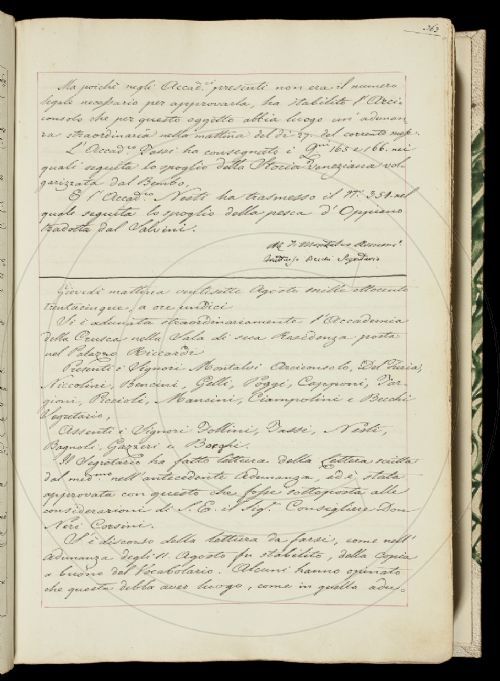 363
Ma poichè negli Accad.ci presenti non era il numero
legale necessario per approvarla, ha stabilito l'Arci-
consolo che per questo oggetto abbia luogo un'adunan-
za straordinaria nella mattina del dì 27. del corrente mese.
L'Accad.co Tassi ha consegnato i Q.ni 165 e 166. nei
quali seguita lo spoglio della Storia Veneziana vol-
garizzata dal Bembo.
E l'Accad.co Nesti ha trasmesso il N.o 351. nel
quale seguita lo spoglio della pesca d'Oppiano
tradotta dal Salvini.
Montalvi
Becchi Segretario
Giovedì mattina ventisette Agosto mille ottocento
trentacinque, a ore undici
Si è adunata straordinariamente l'Accademia
della Crusca nella Sala di sua Residenza posta
nel Palazzo Riccardi
Presenti i Signori Montalvi Arciconsolo, Del Furia,
Niccolini, Bencini, Gelli, Poggi, Capponi, Tar-
gioni, Piccioli, Mansini, Ciampolini e Becchi
Segretario,
Assenti i Signori Follini, Tassi, Nesti,
Bagnoli, Gazzeri e Borghi.
Il Segretario ha fatto lettura della Lettera scritta
dal med.mo nell'antecedente Adunanza, ed è stata
approvata con questo che fosse sottoposta alle
considerazioni di S. E. il Sig.r Consigliere Don
Neri Corsini.
S'è discorso della lettura da farsi, come nell'
Adunanza degli 11. Agosto fu stabilito, della Copia
a buono del Vocabolario. Alcuni hanno opinato
che questa debba aver luogo, come in quella adu-